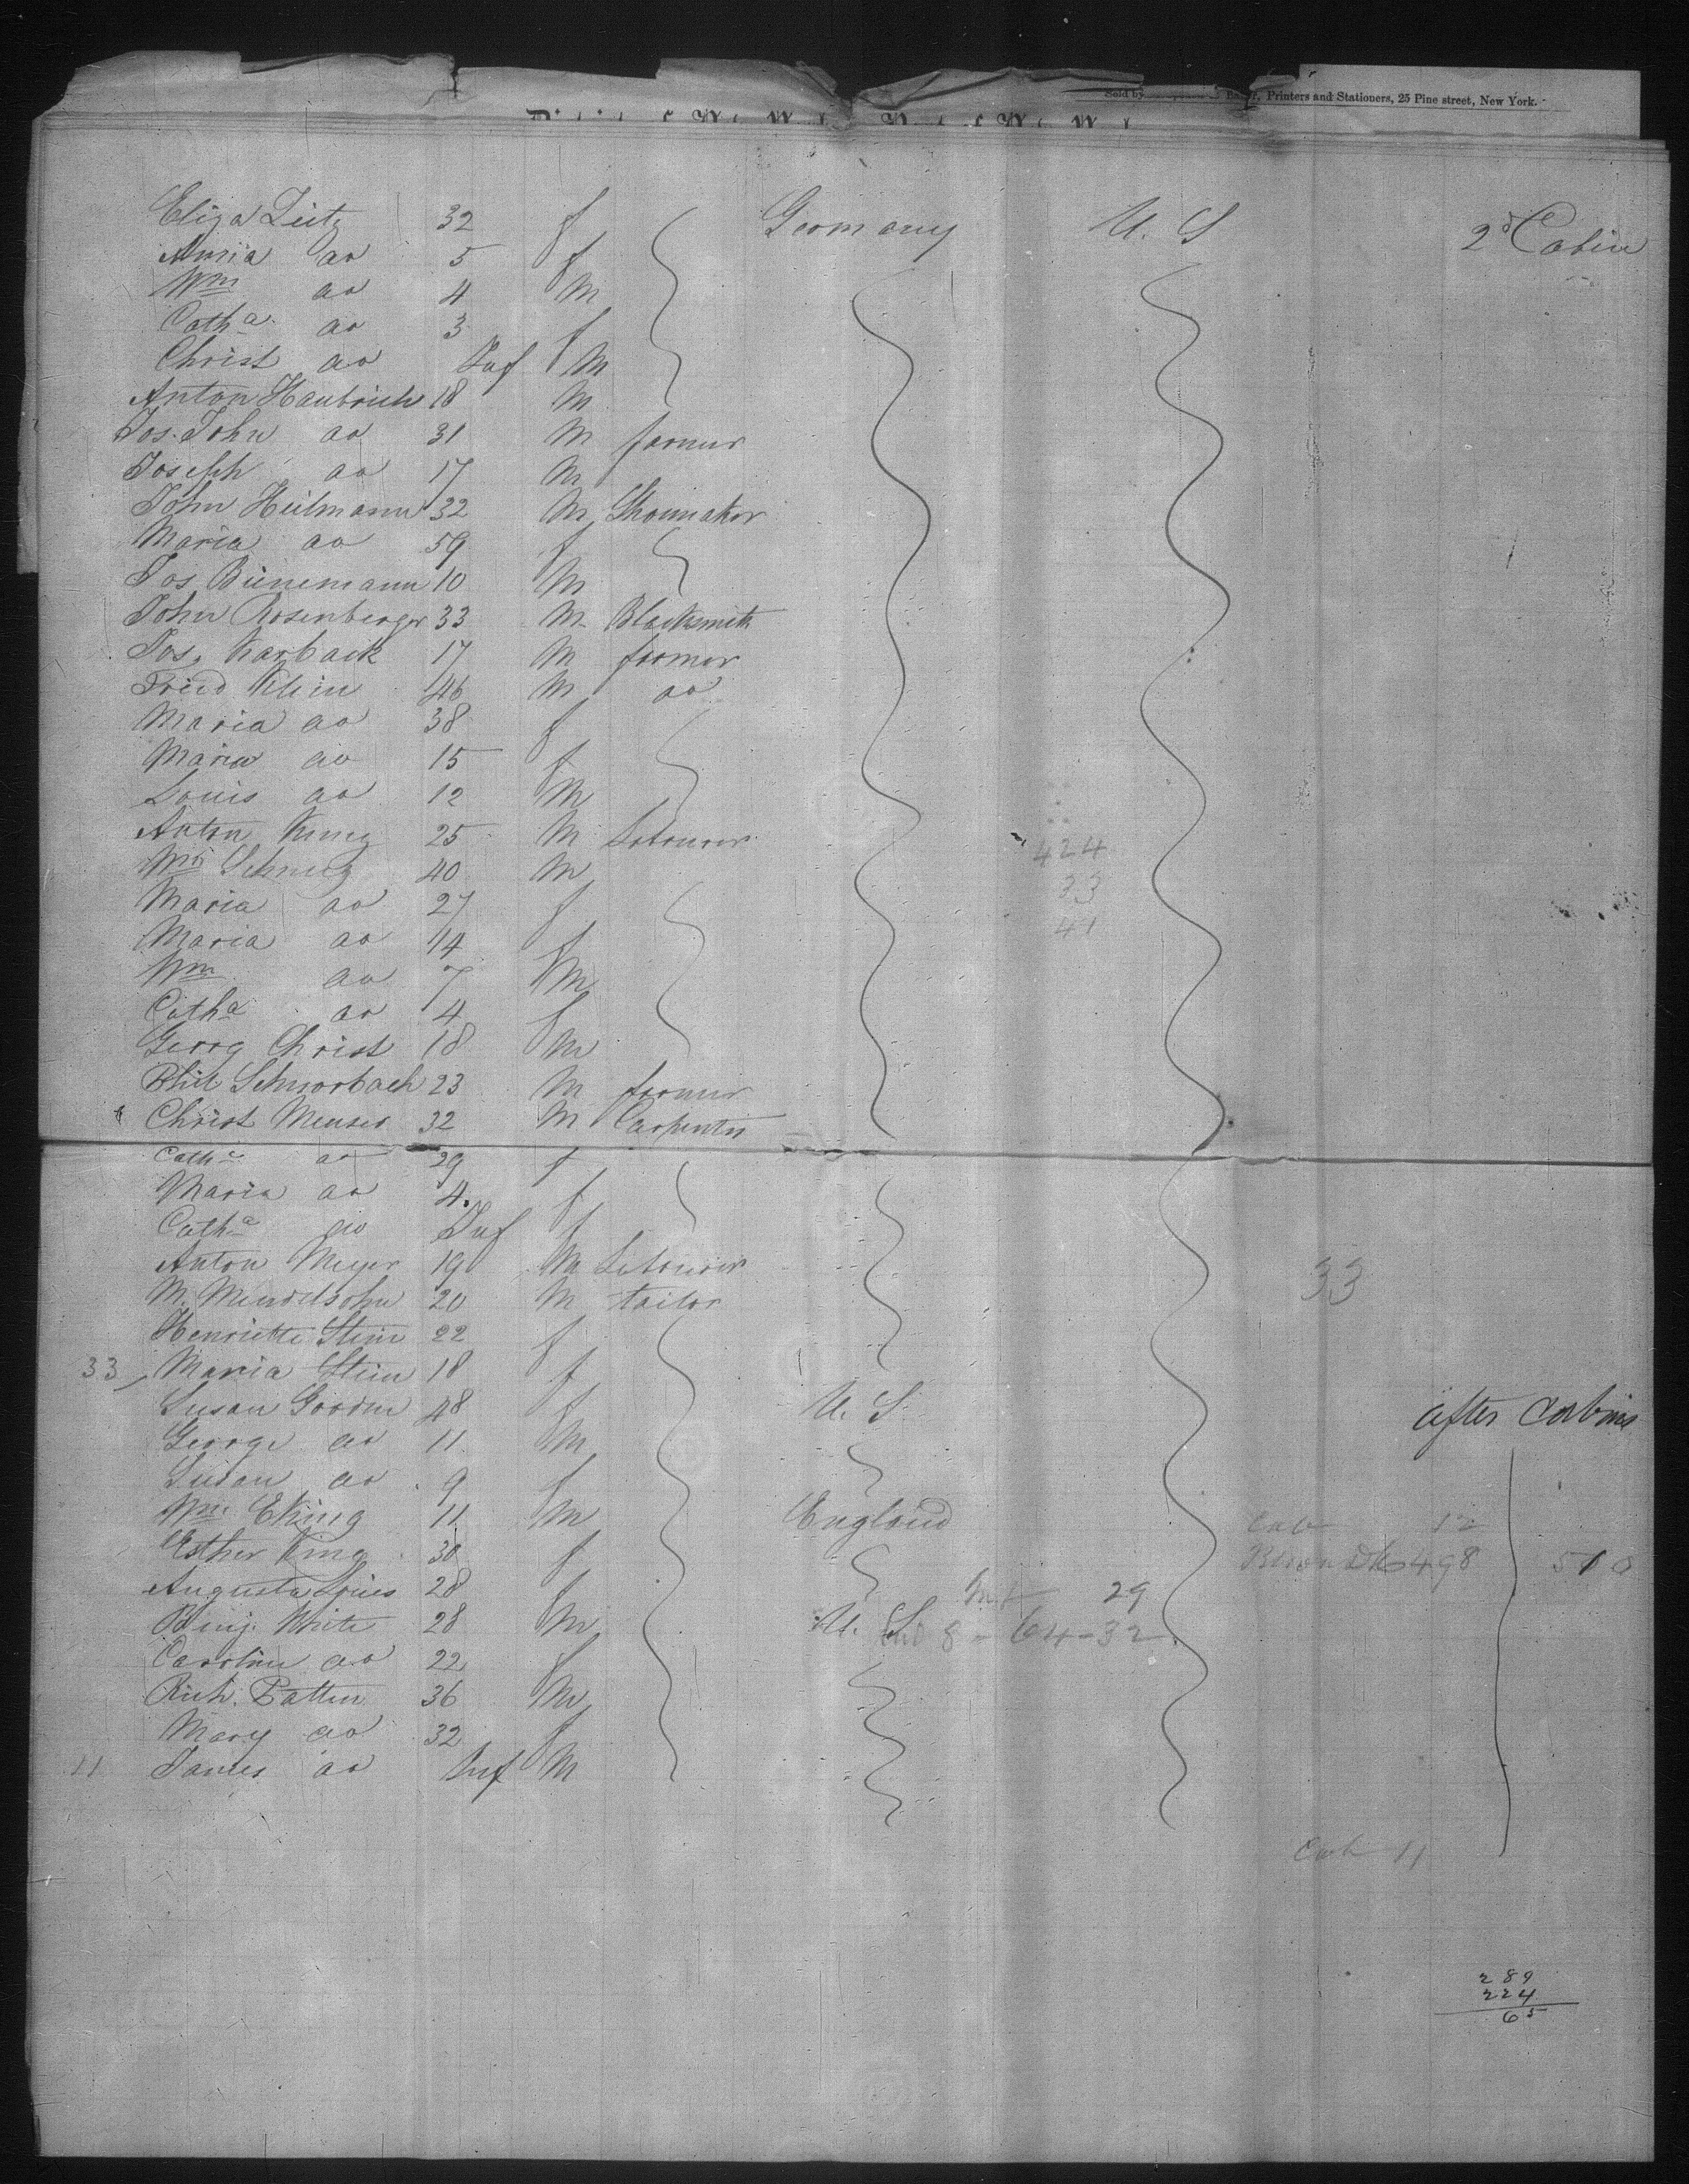 Sold by Printers and Stationers, 25 Pine street, New York.
Eliza Zeitz 32 f Germany U. S 2d Cabin
Anna do 5 f
Wm do 4 M
Catha do 3 f
Christ do Inf M
Anton Haubrich 18 M
Jos. John do 31 M farmer
Joseph do 17 M
John Heilmann 32 M Shoemaker
Maria do 59 f
Jos Bünemann 10 M
John Rosenberger 33 M Blacksmith
Jos. Karbach 17 M farmer
Fried Klein 46 M do
Maria do 38 f
Maria do 15 f
Louis do 12 M
Anton 25 M Labourer
424
Wm 40 M
33
Maria do 27 f
41
Maria do 14 f
Wm do 7 M
Catha do 4 f
Georg Christ 18 M
Phil 23 M farmer
Christ Menser 32 M Carpenter
Catha do 29 f
Maria do 4 f
Catha do Inf f
Anton Meyer 19 M Labourer
33
M. Mendelsohn 20 M tailor
Henriette Stein 22 f
33 Maria Stein 18 f
Susan 48 f U. S. after Cabins
George do 11 M
Susan do 9 f
Wm. 11 M England
Cab 12
Esther King 30 f
498 510
Augusta 28 f
Inf 29
Benj. White 28 M U. S
8 - 64 - 32
Caroline do 22 f
Rich. Patten 36 M
Mary do 32 f
11 James do Inf M
Cab 11
289
224
65